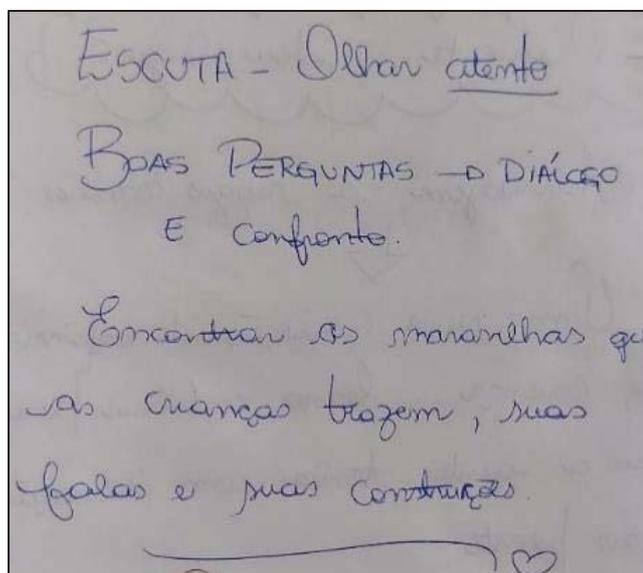 ESCUTA - Olhar atento
BOAS PERGUNTAS → DIÁLOGO
E confronto.
Encontrar as maravilhas
as crianças trazem, suas
falas e suas construções.